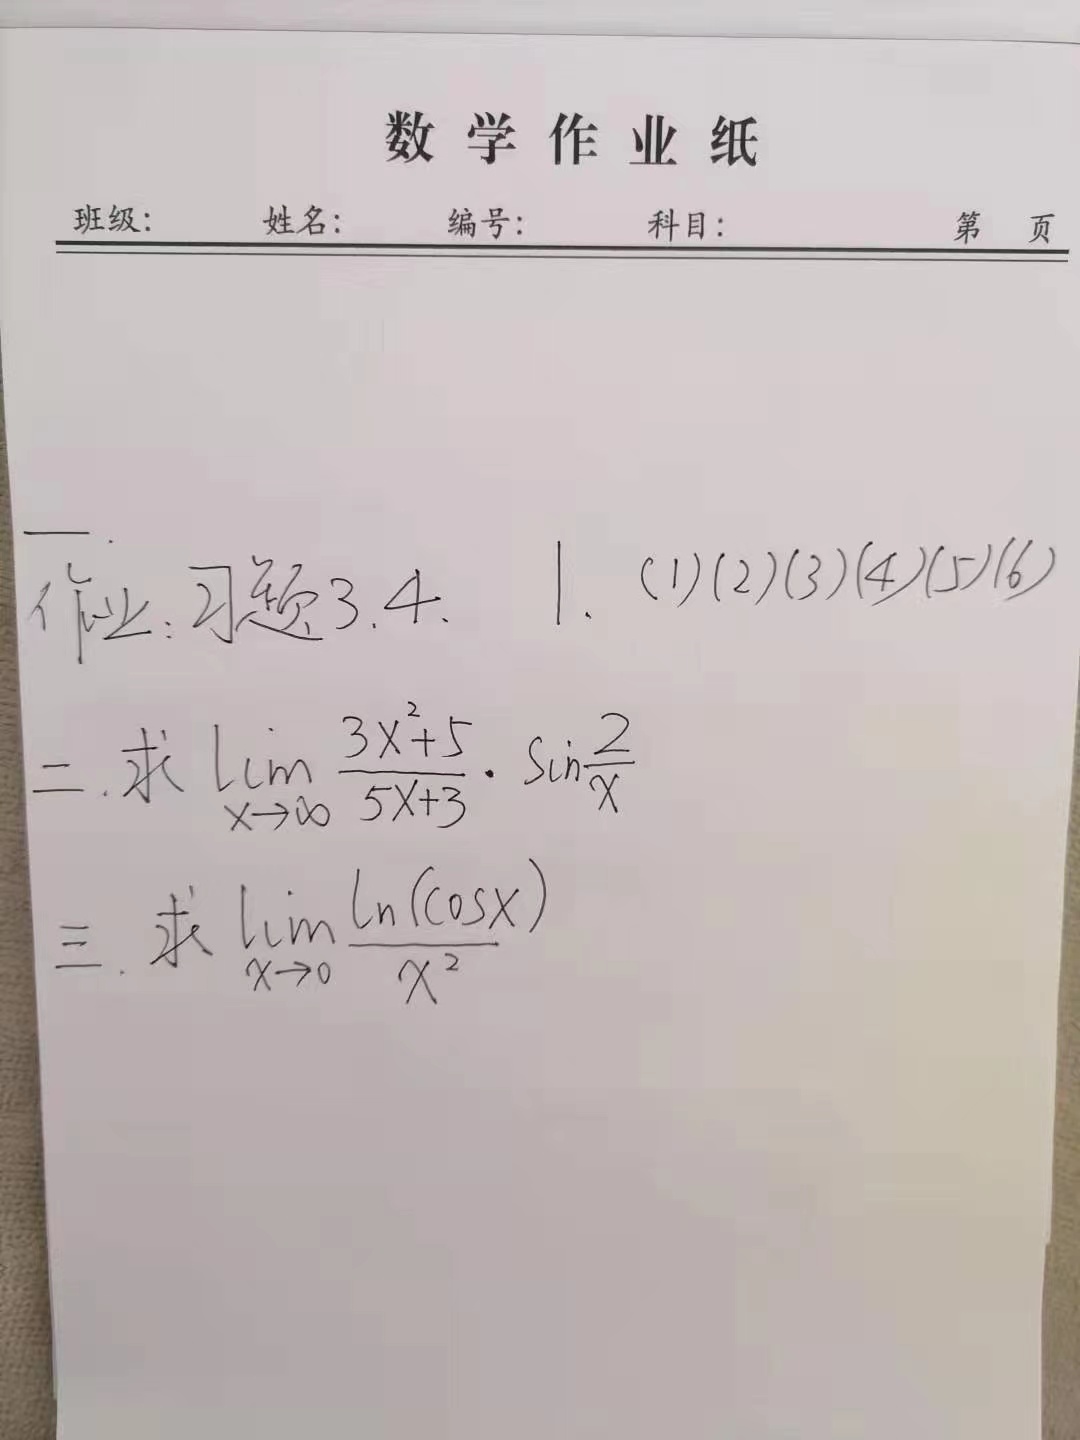 数学作业纸
班级: 姓名: 编号: 科目: 第 页
一.
作业:习题3.4. 1. (1)(2)(3)(4)(5)(6)
二.求 lim x→∞ (3x²+5)/(5x+3) · sin 2/x
三.求 lim x→0 ln(cosx)/x²